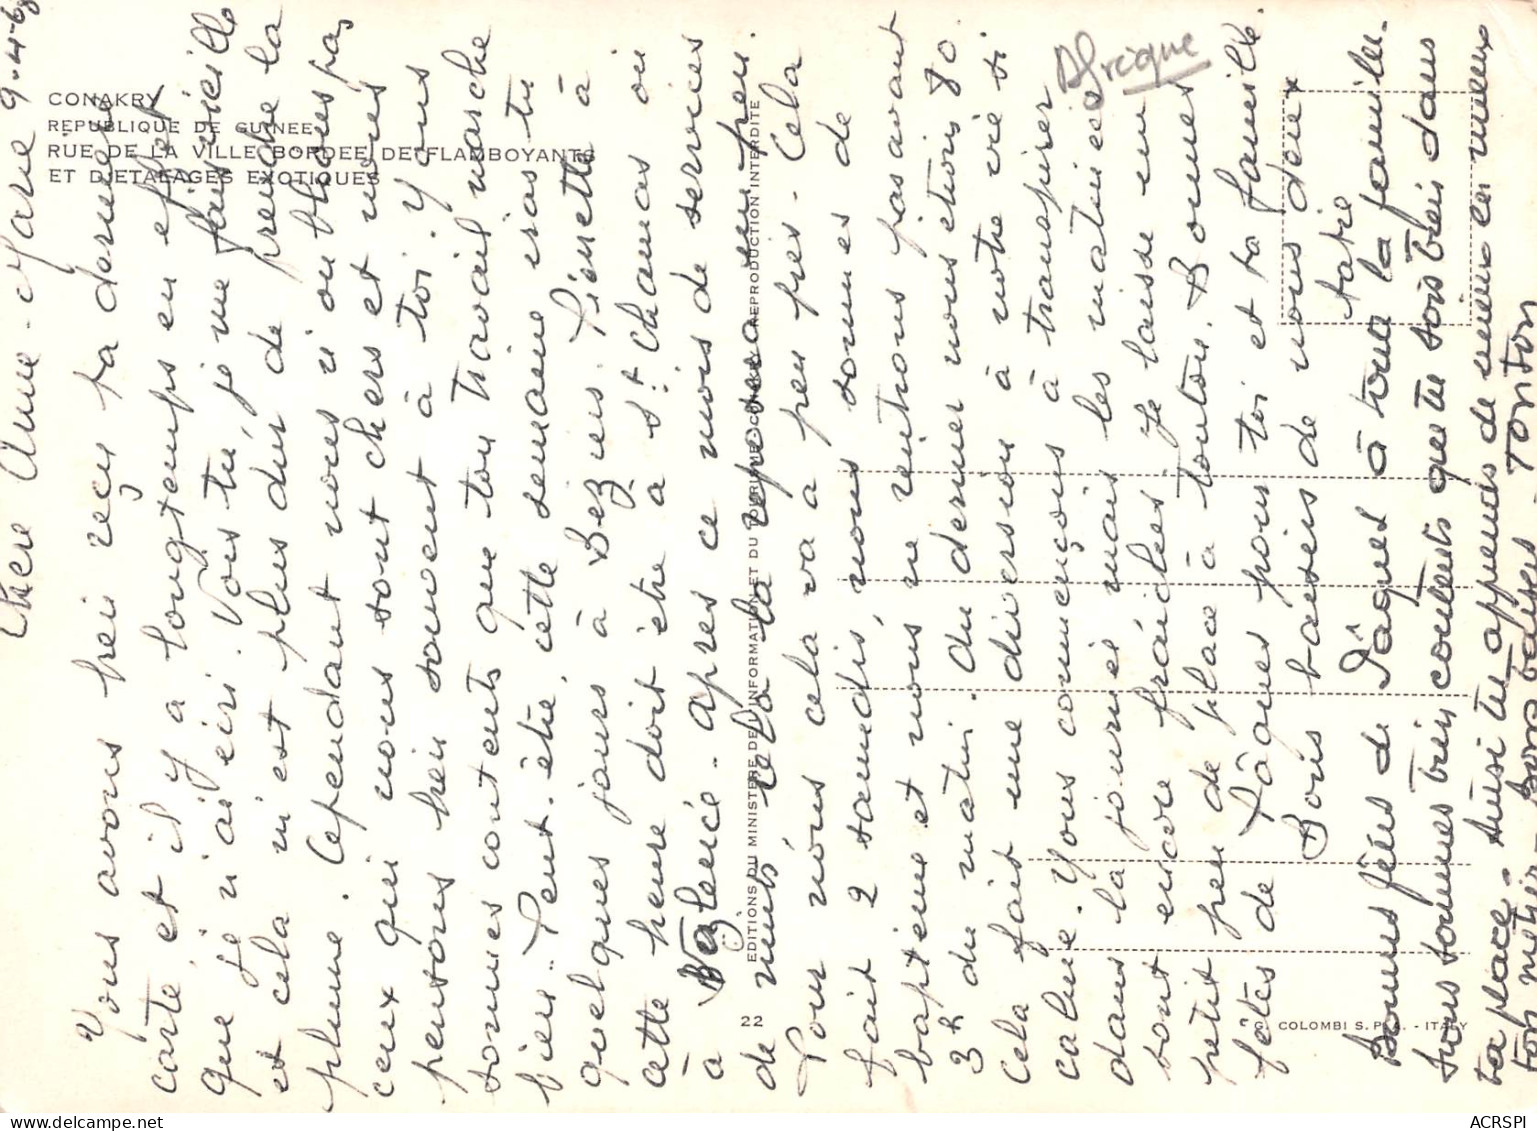 CONAKRY
REPUBLIQUE DE GUINEE
RUE DE LA VILLE BORDEE DE FLAMBOYANTS
ET D'ETALAGES EXOTIQUES
Afrique
EDITIONS DU MINISTERE DE L'INFORMATION ET DU TOURISME - CONAKRY - REPRODUCTION INTERDITE
22
G. COLOMBI S.P.A. - ITALY
9-4-68
Chère Anne-Marie
Nous avons bien reçu ta dernière
carte et il y a longtemps en effet
que je n'ai écri. Vois tu, je me fais vieille
et cela m'est plus dur de prendre la
plume. Cependant nous n'oublions pas
ceux qui nous sont chers et nous
pensons bien souvent à toi. Nous
sommes contents que ton travail marche
bien. Peut-être, cette semaine iras tu
quelques jours à Béziers. Pierrette à
cette heure doit être à St Chamas ou
à Valence. après ce mois de services
de nuit, cela la reposera un peu.
Pour nous cela va à peu près. Cela
fait 2 samedis, nous sommes de
baptême et nous ne rentrons pas avant
3h du matin. Au dernier nous étions 80.
Cela fait une diversion à notre vie si
calme. Nous commençons à transpirer
dans la journée mais les matinées
sont encore fraîches Je laisse un
petit peu de place à tonton. Bonnes
fêtes de Pâques pour toi et ta famille.
Bons baisers de nous deux
tatie
Bonnes fêtes de Pâques à toute la famille.
Nous sommes bien contents que tu sois bien dans
ta place. Aussi tu apprends de mieux en mieux
ton métier. Bons baisers. TONTON
ACRSPI